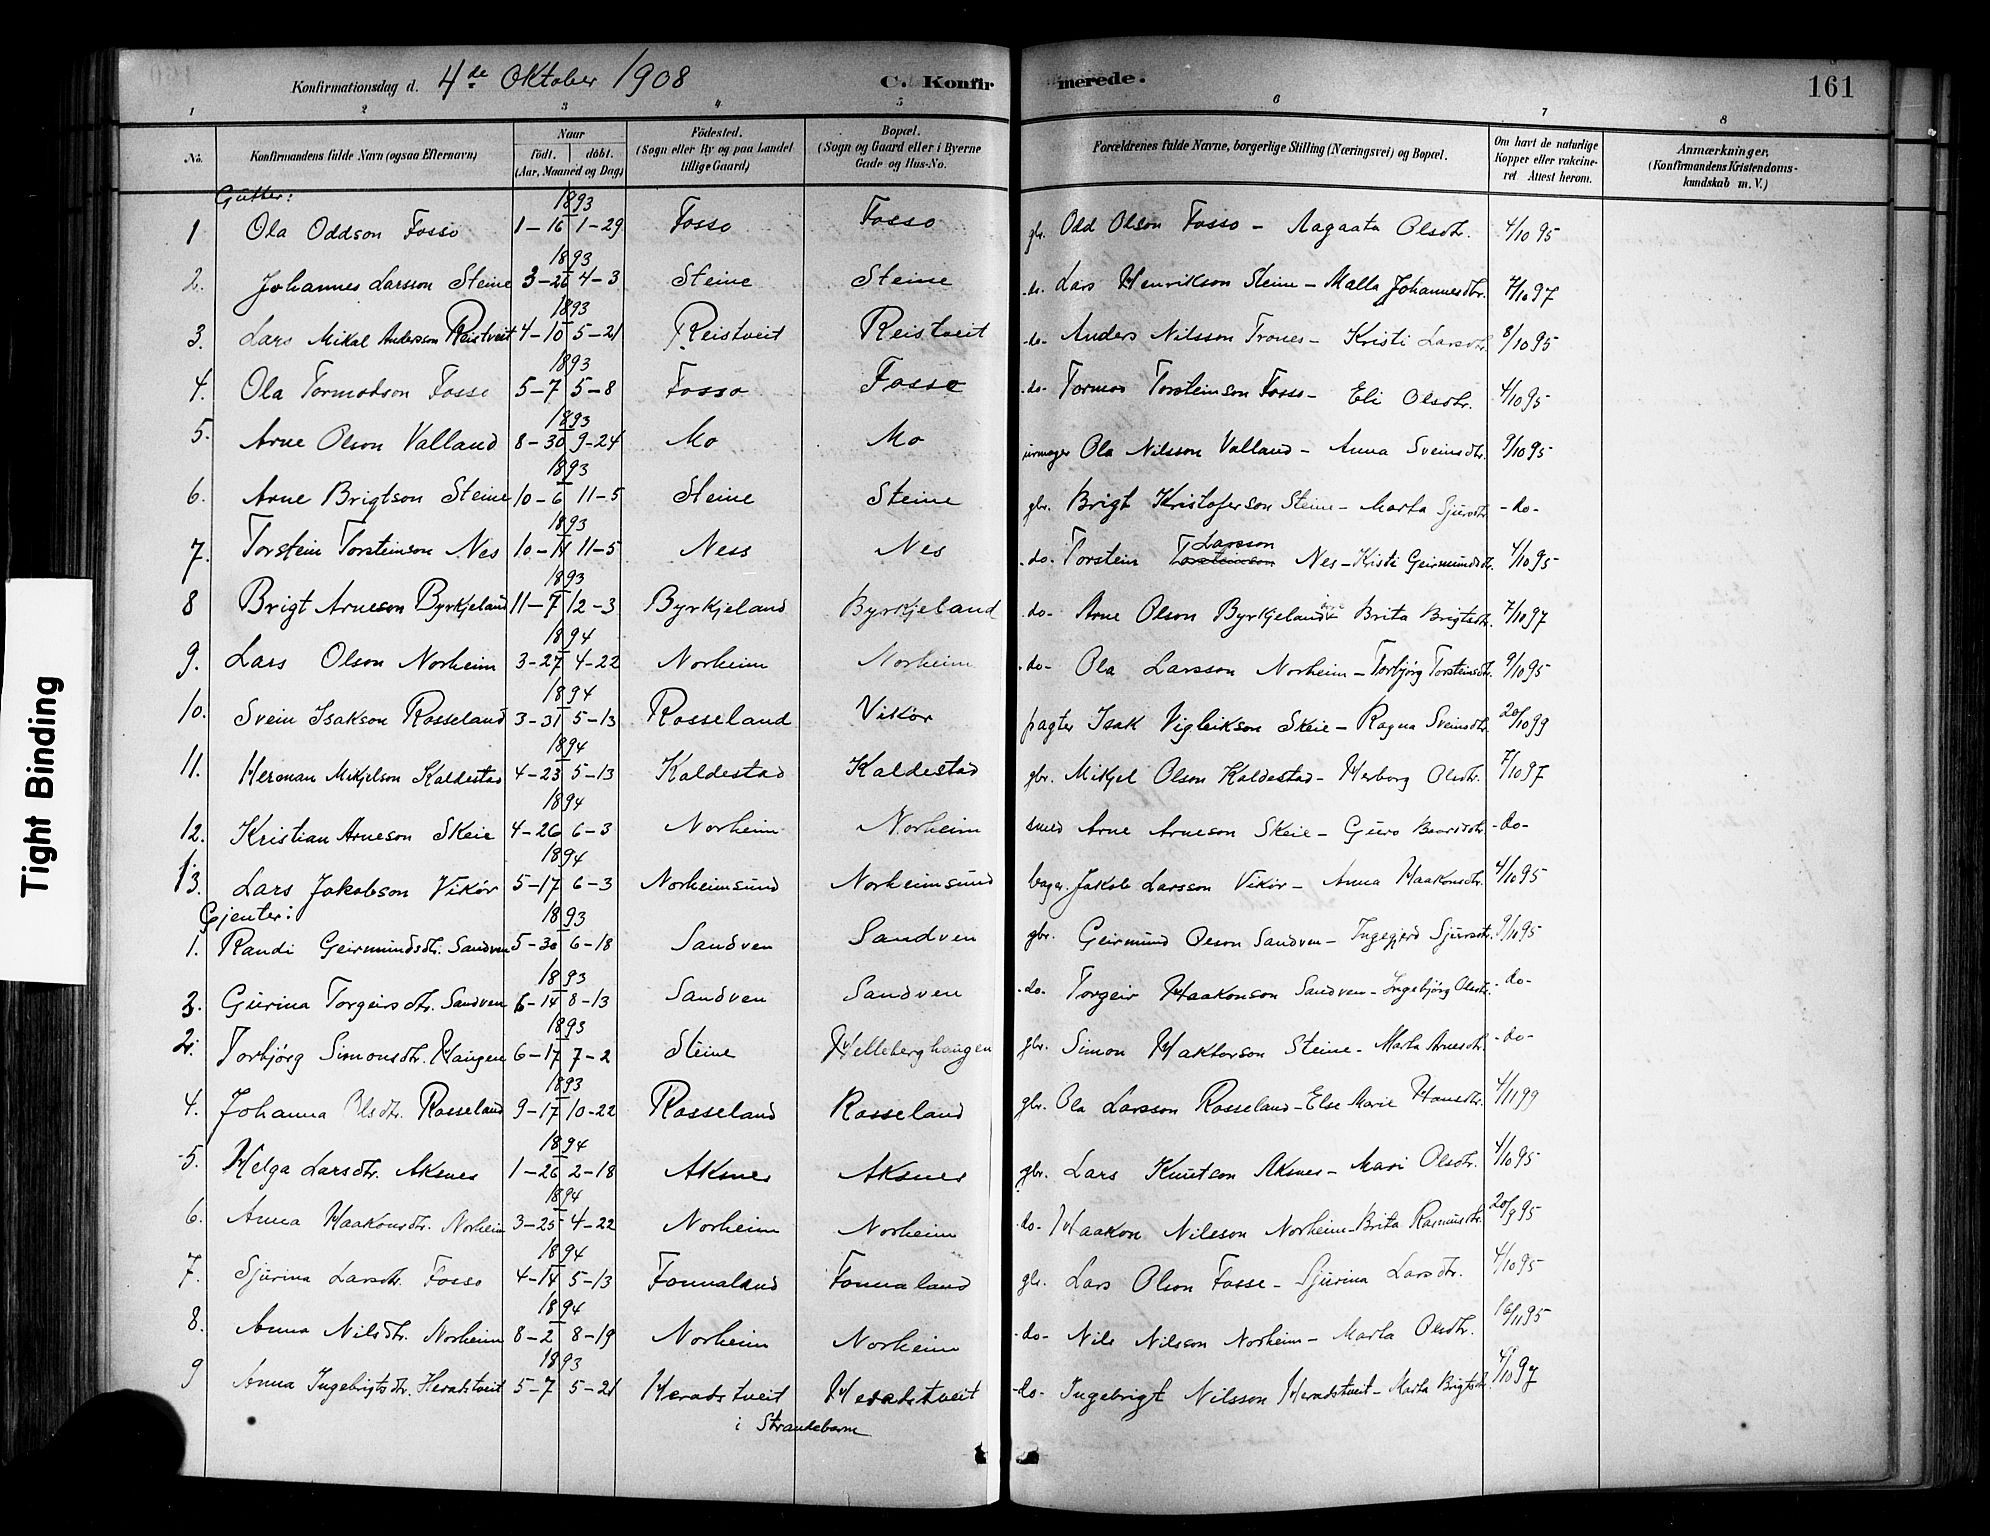 Konfirmationsdag d. 4de Oktober 1908 C. Konfirmerede. 161
1 2 3 4 5 6 7 8
No. Konfirmandens fulde Navn (ogsaa Efternavn) Naar født. døbt. (Aar, Maaned og Dag) Födested. (Sogn eller By og paa Landet tillige Gaard) Bopæl. (Sogn og Gaard eller i Byerne Gade og Hus-No. Forældrenes fulde Navne, borgerlige Stilling (Næringsvei) og Bopæl. Om havt de naturlige Kopper eller vakcineret Attest herom. Anmærkninger, (Konfirmandens Kristendomskundskab m. V.)
Gutter:
1 Ola Oddson Fosso 1893 1-16 1-29 Fosso Fosso gbr. Odd Olson Fosso - Aagaata Olsdtr. 4/10 95
2. Johannes Larsson Steine 1893 3-26 4-3 Steine Steine -do- Lars Henrikson Steine - Malla Johannesdtr. 7/10 97
3. Lars Mikal Andersson Reistveit 1893 4-10 5-21 Reistveit Reistveit -do- Anders Nilsson Trones - Kristi Larsdtr. 8/10 95
4. Ola Tormodson Fosse 1893 5-7 5-8 Fosso Fosse -do- Tormod Torsteinson Fosse - Eli Olsdtr. 4/10 95
5. Arne Olson Valland 1893 8-30 9-24 Mo Mo urmager Ola Nilsson Valland - Anna Sveinsdtr. 9/10 95
6. Arne Brigtson Steine 1893 10-6 11-5 Steine Steine gbr. Brigt Kristoferson Steine - Marta Sjursdtr. -do-
7. Torstein Torsteinson Nes 1893 10-14 11-5 Ness Nes -do- Torstein Torsteinson Larsson Nes - Kristi Geirmundsdtr. 4/10 95
8 Brigt Arneson Byrkjeland 1893 11-7 12-3 Byrkjeland Byrkjeland -do- Arne Olson Byrkjeland Brita Brigtsdtr. 7/10 97
9. Lars Olson Norheim 1894 3-27 4-22 Norheim Norheim -do- Ola Larsson Norheim - Torbjørg Torsteinsdtr. 9/10 95
10. Svein Isakson Rosseland 1894 3-31 5-13 Rosseland Vikør pagter Isak Vigleikson Skeie - Ragna Sveinsdtr. 20/10 99
11. Herman Mikjelson Kaldestad 1894 4-23 5-13 Kaldestad Kaldestad gbr. Mikjel Olson Kaldestad - Herborg Olsdtr. 7/10 97
12. Kristian Arneson Skeie 1894 4-26 6-3 Norheim Norheim smed Arne Arneson Skeie - Guro Baardsdtr. -do-
13. Lars Jakobson Vikør 1894 5-17 6-3 Norheimsund Norheimsund bager. Jakob Larsson Vikør - Anna Haakonsdtr. 4/10 95
Gjenter:
1. Randi Geirmundsdtr. Sandven 1893 5-30 6-18 Sandven Sandven gbr. Geirmund Olson Sandven - Ingegjerd Sjursdtr. 9/10 95
3. Gurina Torgeirsdtr. Sandven 1893 6-14 8-13 Sandven Sandven -do- Torgeir Haakonson Sandven - Ingebjørg Olsdtr. -do-
2. Torbjørg Simonsdtr. Haugen 1893 6-17 7-2 Steine Helleberghaugen gbr. Simon Haktorson Steine - Marta Arnesdtr. -do-
4. Johanna Olsdtr. Rosseland 1893 9-17 10-22 Rosseland Rosseland gbr. Ola Larsson Rosseland - Else Marie Hansdtr. 4/11 99
5. Helga Larsdtr. Aksnes 1894 1-26 2-18 Aksnes Aksnes gbr. Lars Knutson Aksnes - Mari Olsdtr. 4/10 95
6. Anna Haakonsdtr. Norheim 1894 3-25 4-22 Norheim Norheim -do- Haakon Nilsson Norheim - Brita Rasmusdtr. 20/9 95
7. Sjurina Larsdtr. Fosso 1894 4-14 5-13 Fonnaland Fonnaland gbr. Lars Olson Fosse - Sjurina Larsdtr. 4/10 95
8. Anna Nilsdtr. Norheim 1894 8-2 8-19 Norheim Norheim -do- Nils Nilsson Norheim - Marta Olsdtr. 16/11 95
9 Anna Ingebrigtsdtr. Heradstveit 1893 5-7 5-21 Heradstveit Heradstveit -do- Ingebrigt Nilsson Heradstveit - Marta Brigtsdtr. 4/10 97
i Strandebarm
Tight Binding